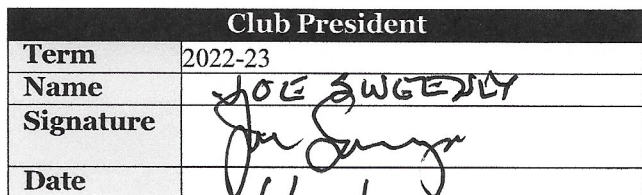 Club President
Term 2022-23
Name JOE SWEENEY
Signature
Date